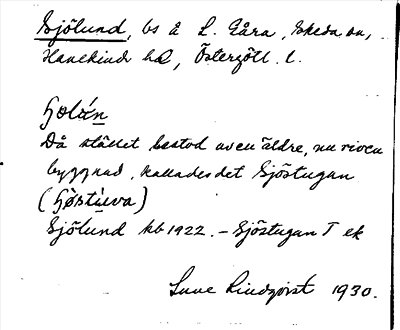 Sjölund, bs å L. Gåra, Skeda sn,
Hanekinds hd, Östergötl. l.
Då stället bestod av en äldre, nu riven
byggnad, kallades det Sjöstugan
Sjölund kb 1922. – Sjöstugan T ek
Sune Lindqvist 1930.